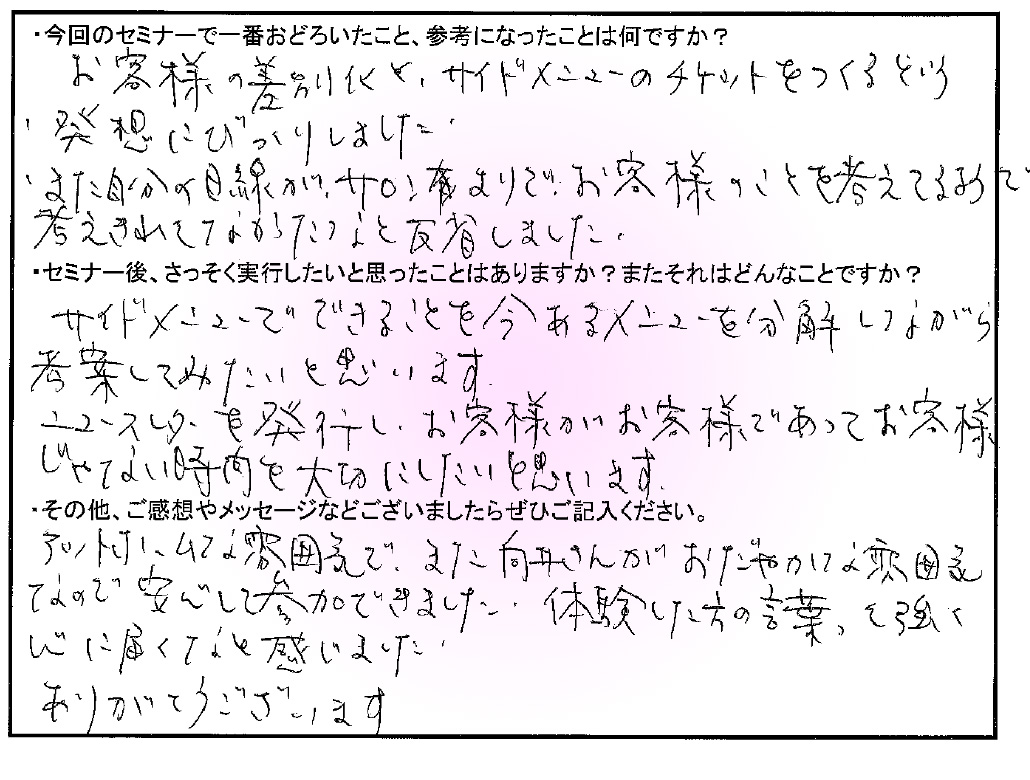 ・今回のセミナーで一番おどろいたこと、参考になったことは何ですか？
お客様の差別化と、サイドメニューのチケットをつくるという
発想にびっくりしました。
また自分の目線が、サロン有まりで、お客様のことを考えてるようで
考えきれてなかったなと反省しました。
・セミナー後、さっそく実行したいと思ったことはありますか？またそれはどんなことですか？
サイドメニューでできることを今あるメニューを分解しながら
考案してみたいと思います。
ニュースレターを発行し、お客様がお客様であってお客様
じゃない時間を大切にしたいと思います。
・その他、ご感想やメッセージなどございましたらぜひご記入ください。
アットホームな雰囲気で、また向井さんがおだやかな雰囲気
なので安心して参加できました。体験した方の言葉って強く
心に届くなと感じました。
ありがとうございます